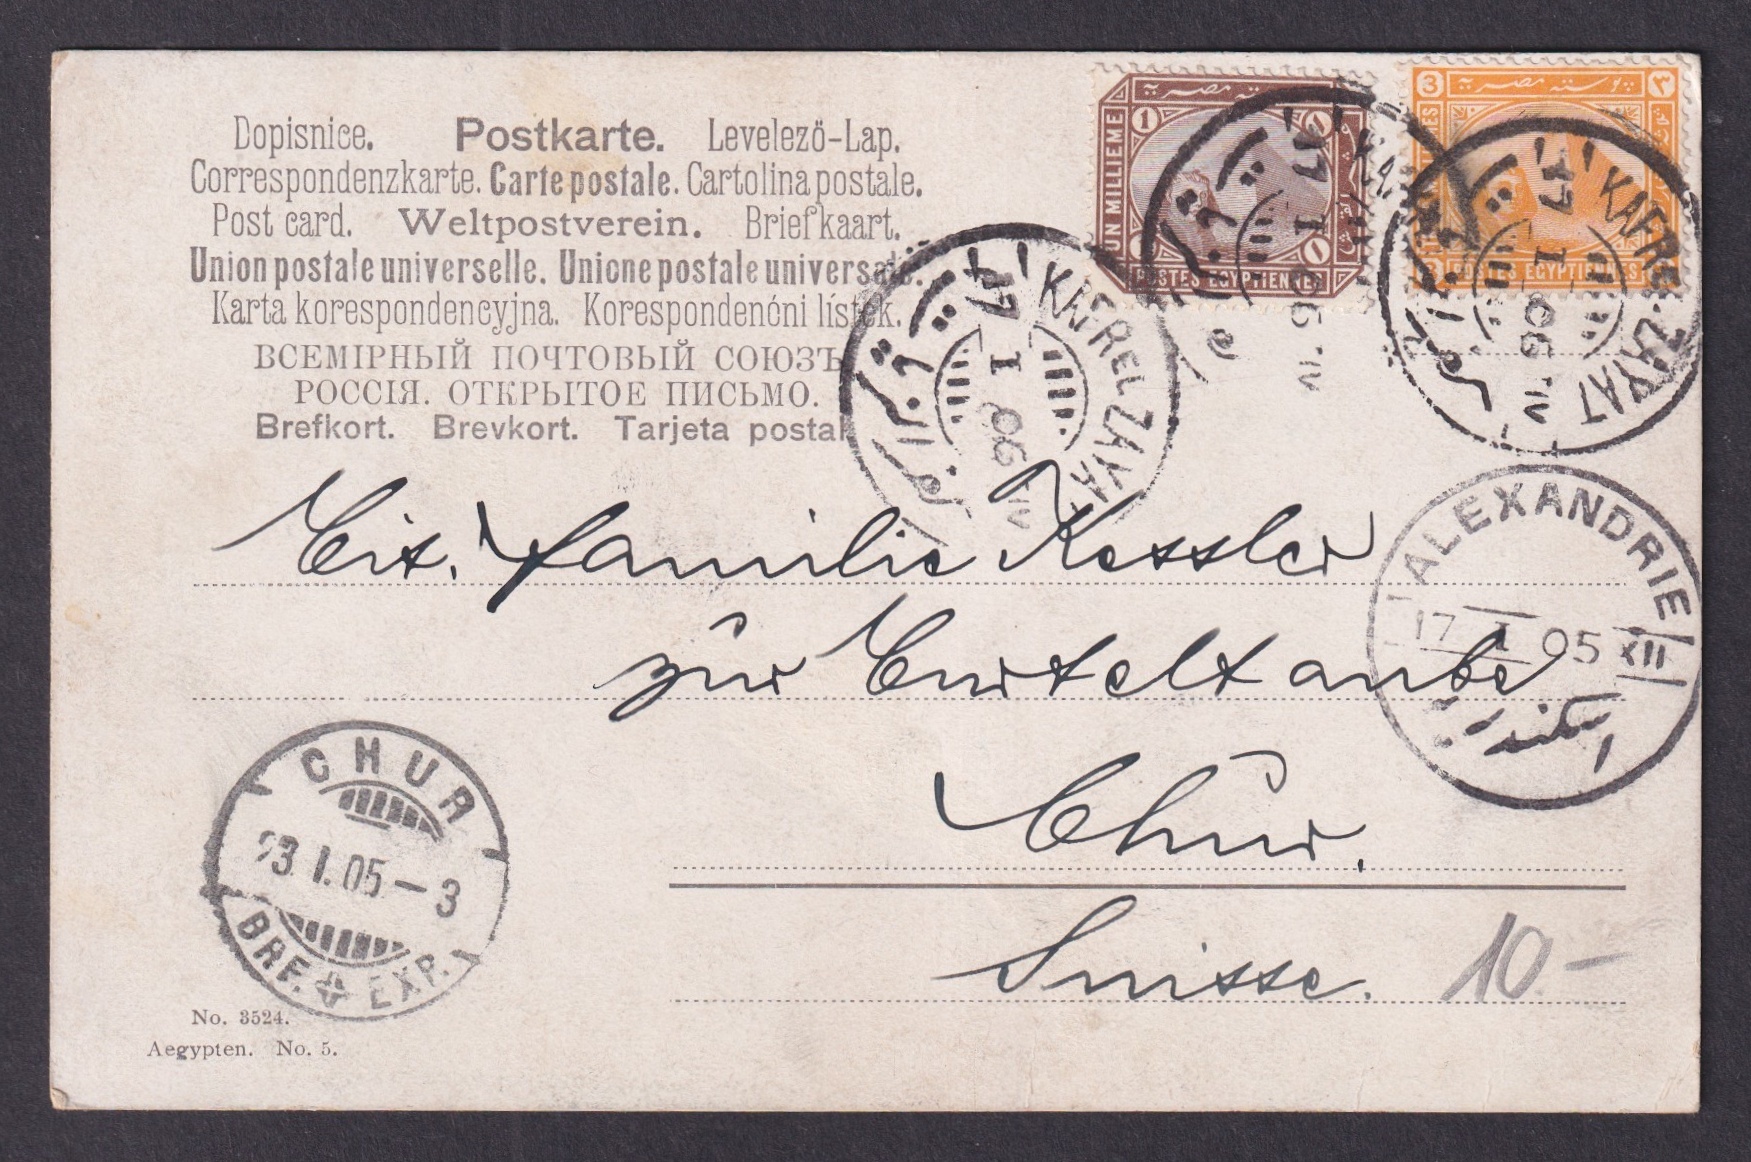 Dopisnice. Postkarte. Levelező-Lap.
Correspondenzkarte. Carte postale. Cartolina postale.
Post card. Weltpostverein. Briefkaart.
Union postale universelle. Unione postale universale.
Karta korespondencyjna. Korespondenční lístek.
ВСЕМІРНЫЙ ПОЧТОВЫЙ СОЮЗЪ
РОССІЯ. ОТКРЫТОЕ ПИСЬМО.
Brefkort. Brevkort. Tarjeta postal
بوستة مصرية
1
UN MILLIEME
POSTES EGYPTIENNES
3 ٣
بوستة مصرية
POSTES EGYPTIENNES
KAFR EL ZAYAT
17 I 05 IV
KAFR EL ZAYAT
17 I 05 IV
17 I 05 IV
ALEXANDRIE
17 I 05 XII
اسكندرية
Familie Kessler
zur
Chur.
Suisse.
10-
CHUR
23.I.05-3
BRF. EXP.
No. 3524.
Aegypten. No. 5.